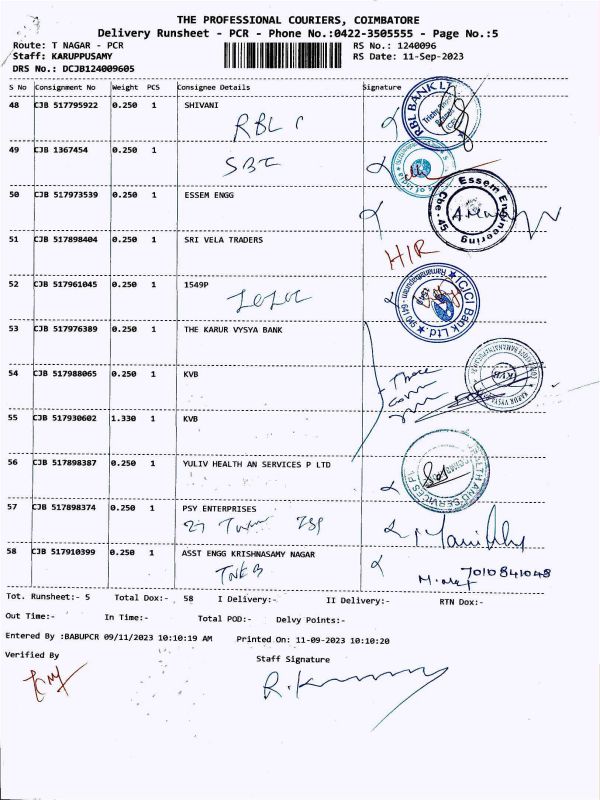 THE PROFESSIONAL COURIERS, COIMBATORE
Delivery Runsheet - PCR - Phone No.:0422-3505555 - Page No.:5
Route: T NAGAR - PCR RS No.: 1240096
Staff: KARUPPUSAMY RS Date: 11-Sep-2023
DRS No.: DCJB124009605
S No Consignment No Weight PCS Consignee Details Signature
48 CJB 517795922 0.250 1 SHIVANI
RBL
RBL BANK LTD
49 CJB 1367454 0.250 1
SBI
50 CJB 517973539 0.250 1 ESSEM ENGG
Essem Engineering Cbe - 45
51 CJB 517898404 0.250 1 SRI VELA TRADERS
H/R
52 CJB 517961045 0.250 1 1549P
ICICI Bank Ltd. Ramanathapuram - 641 045
53 CJB 517976389 0.250 1 THE KARUR VYSYA BANK
54 CJB 517988065 0.250 1 KVB
Three
KVB
KARUR VYSYA
55 CJB 517930602 1.330 1 KVB
56 CJB 517898387 0.250 1 YULIV HEALTH AN SERVICES P LTD
HEALTH AND SERVICES P
57 CJB 517898374 0.250 1 PSY ENTERPRISES
58 CJB 517910399 0.250 1 ASST ENGG KRISHNASAMY NAGAR
TNEB
7010841048
Tot. Runsheet:- 5 Total Dox:- 58 I Delivery:- II Delivery:- RTN Dox:-
Out Time:- In Time:- Total POD:- Delvy Points:-
Entered By :BABUPCR 09/11/2023 10:10:19 AM Printed On: 11-09-2023 10:10:20
Verified By
Staff Signature